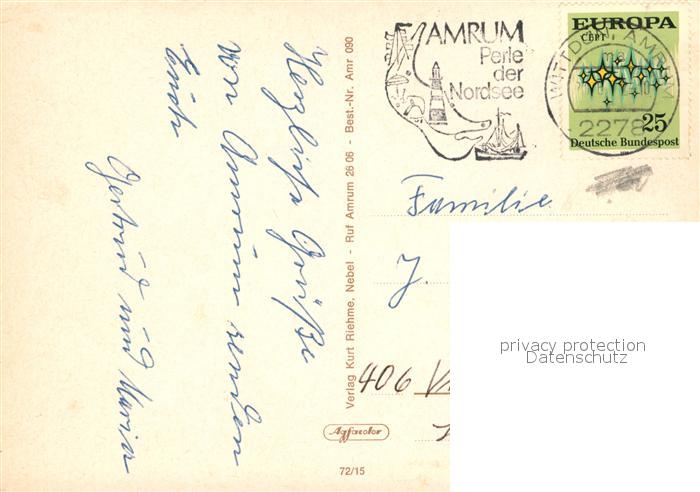 Herzliche Grüße
von Amrum senden
Euch
Gertrud und Maria
Verlag Kurt Riehme, Nebel - Ruf Amrum 26 06 - Best.-Nr. Amr 090
Agfacolor
72/15
AMRUM
Perle
der
Nordsee
WITTDÜN, AMRUM
2278
EUROPA
CEPT
25
Deutsche Bundespost
Familie
J.
406
privacy protection
Datenschutz